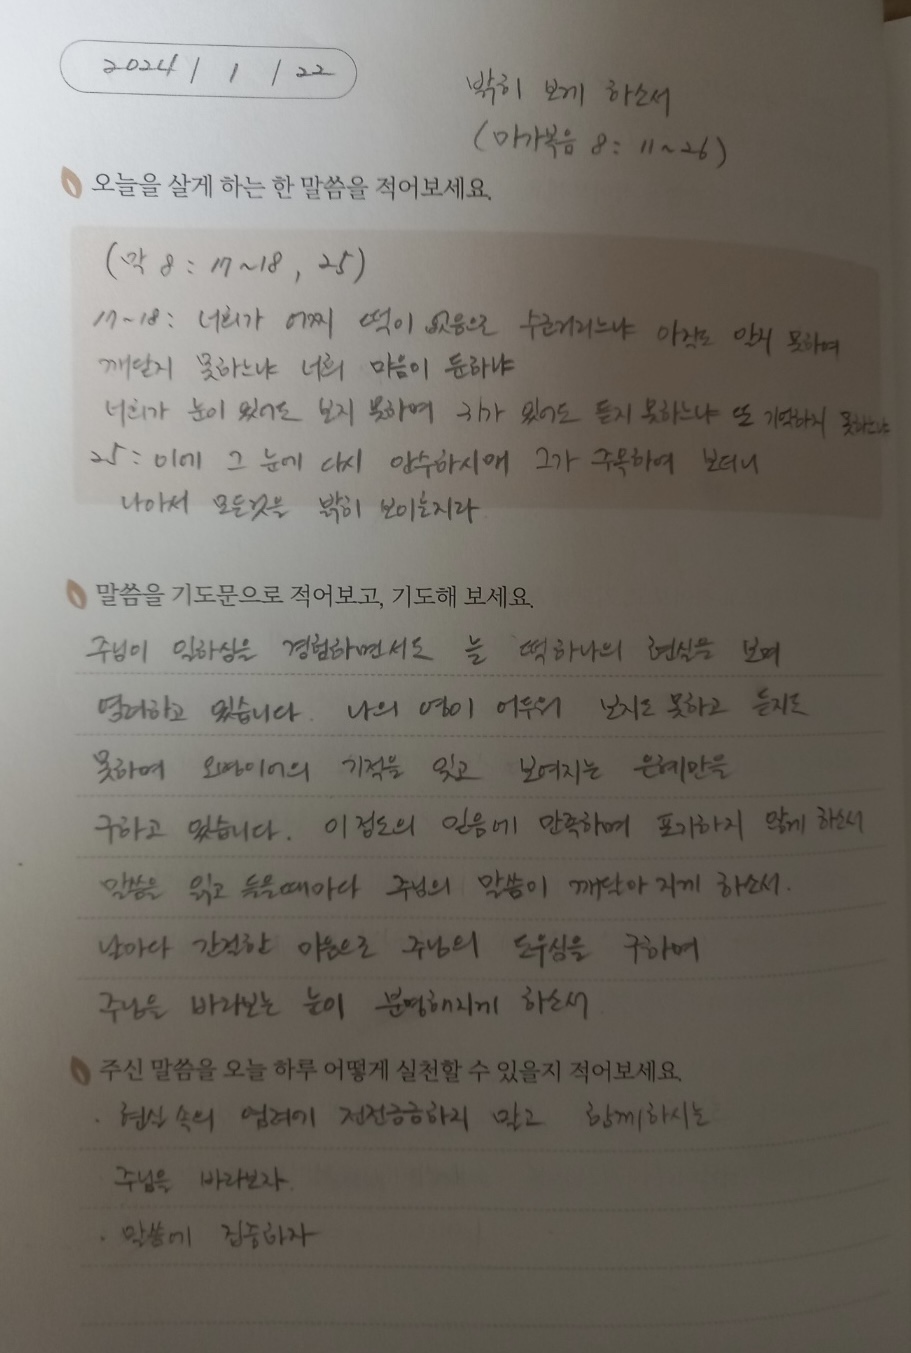 2024 / 1 / 22
밝히 보게 하소서
(마가복음 8: 11~26)
오늘을 살게 하는 한 말씀을 적어보세요.
(막 8: 17~18, 25)
17~18: 너희가 어찌 떡이 없음으로 수군거리느냐 아직도 알지 못하며
깨닫지 못하느냐 너희 마음이 둔하냐
너희가 눈이 있어도 보지 못하며 귀가 있어도 듣지 못하느냐 또 기억하지 못하느냐
25: 이에 그 눈에 다시 안수하시매 그가 주목하여 보더니
나아서 모든것을 밝히 보이는지라
말씀을 기도문으로 적어보고, 기도해 보세요.
주님이 일하심을 경험하면서도 늘 떡하나의 현실을 보며
염려하고 있습니다. 나의 영이 어두워 보지도 못하고 듣지도
못하며 오병이어의 기적을 잊고 보여지는 은혜만을
구하고 있습니다. 이정도의 믿음에 만족하며 포기하지 않게 하소서
말씀을 읽고 들을때마다 주님의 말씀이 깨달아 지게 하소서.
날마다 간절한 마음으로 주님의 도우심을 구하며
주님을 바라보는 눈이 분명해지게 하소서
주신 말씀을 오늘 하루 어떻게 실천할 수 있을지 적어보세요.
· 현실 속의 염려에 전전긍긍하지 말고 함께하시는
주님을 바라보자.
· 말씀에 집중하자